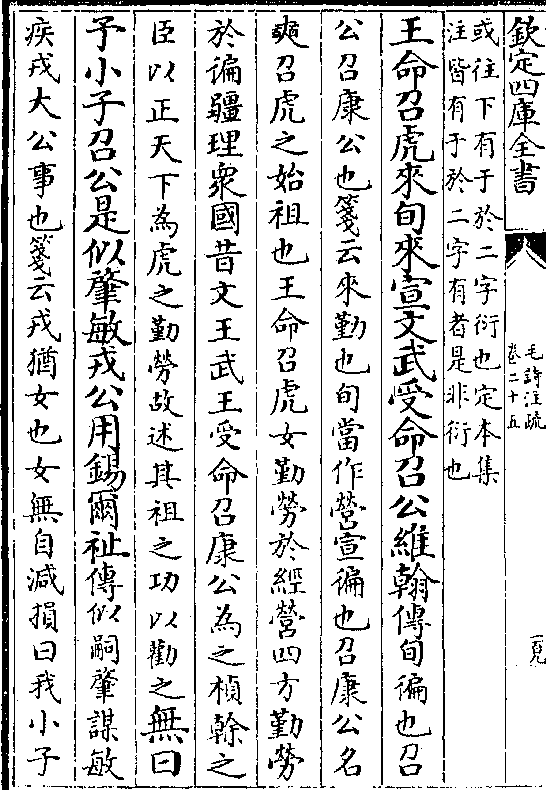 欽定四庫全書
毛詩注疏
卷二十五
或往下有于於二字衍也定本集
注皆有于於二字有者是非衍也
王命召虎來旬來宣文武受命召公維翰傳旬徧也召
公召康公也箋云來勤也旬當作營宣徧也召康公名
奭召虎之始祖也王命召虎女勤勞於經營四方勤勞
於徧疆理衆國昔文王武王受命召康公為之楨榦之
臣以正天下為虎之勤勞故述其祖之功以勸之無曰
予小子召公是似肇敏戎公用錫爾祉傳似嗣肇謀敏
疾戎大公事也箋云戎猶女也女無自減損曰我小子